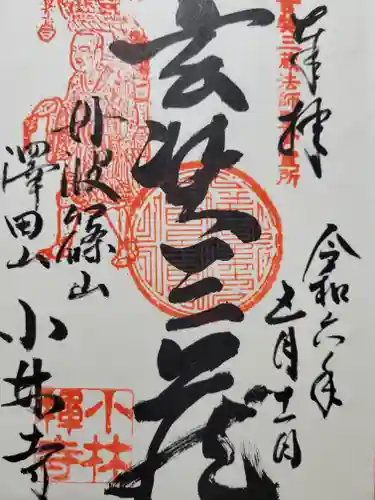 奉拝
玄奘三蔵法師
令和六年
五月十一日
玄奘三蔵
丹波篠山
澤田山
小林寺
小林
禪寺